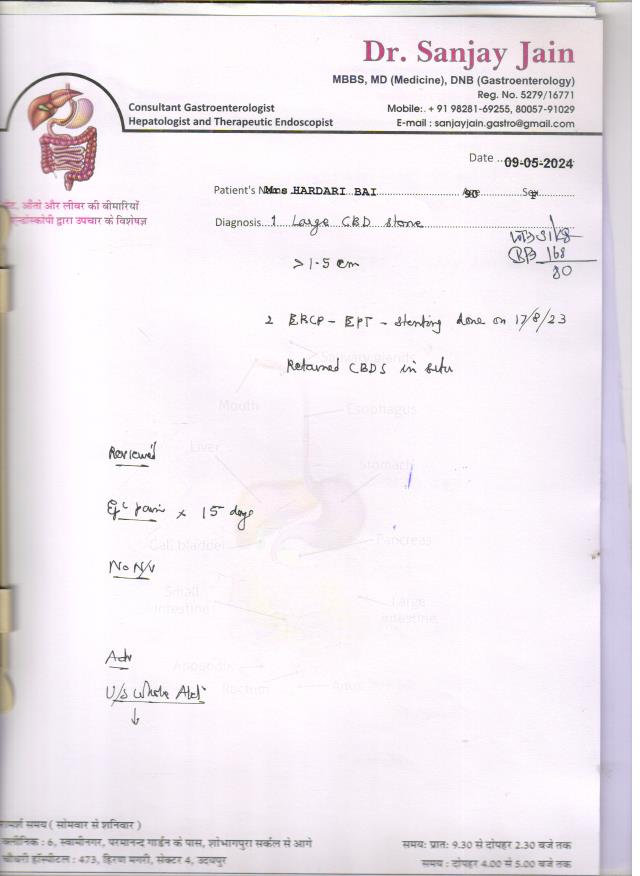 Dr. Sanjay Jain
MBBS, MD (Medicine), DNB (Gastroenterology)
Reg. No. 5279/16771
Consultant Gastroenterologist
Mobile:. + 91 98281-69255, 80057-91029
Hepatologist and Therapeutic Endoscopist
E-mail : sanjayjain.gastro@gmail.com
Date 09-05-2024
आंतों और लीवर की बीमारियों
द्वारा उपचार के विशेषज्ञ
Patient's HARDARI BAI 90
Diagnosis 1 Large CBD stone
BP 168
80
>1.5 cm
2 ERCP - EPT - stenting done on 17/8/23
Retained CBDS in situ
Mouth
Esophagus
Reviewed
Liver
Stomach
pain x 15 days
Gall bladder
Pancreas
No N/V
Small intestine
Large intestine
Adv
Rectum
U/S Whole Abd
↓
समय ( सोमवार से शनिवार )
: 6, स्वामीनगर, परमानन्द गार्डन के पास, शोभागपुरा सर्कल से आगे
समय: प्रात: 9.30 से दोपहर 2.30 बजे तक
हॉस्पीटल : 473, हिरण मगरी, सेक्टर 4, उदयपुर
समय : दोपहर 4.00 से 5.00 बजे तक